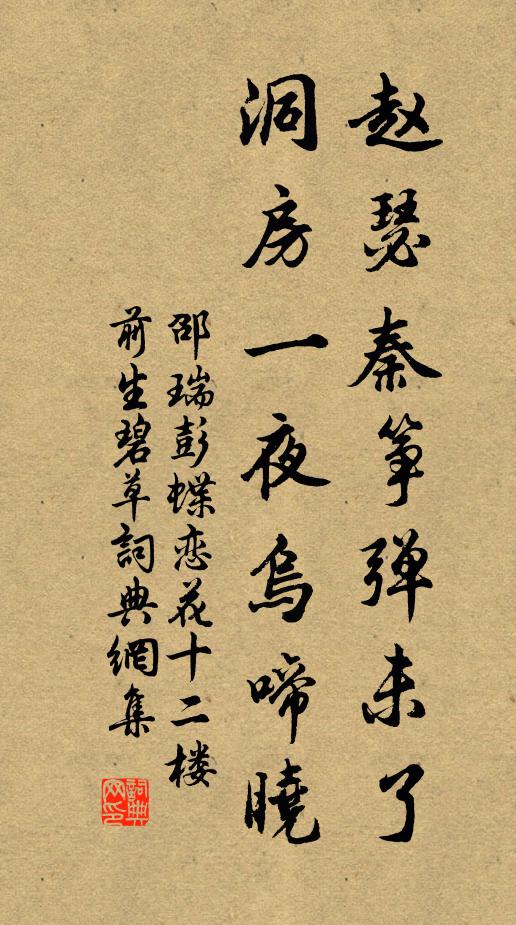 赵瑟秦筝弹未了
洞房一夜乌啼曉
邵瑞彭蝶恋花十二楼
前生碧草詞典網集
詞典网印